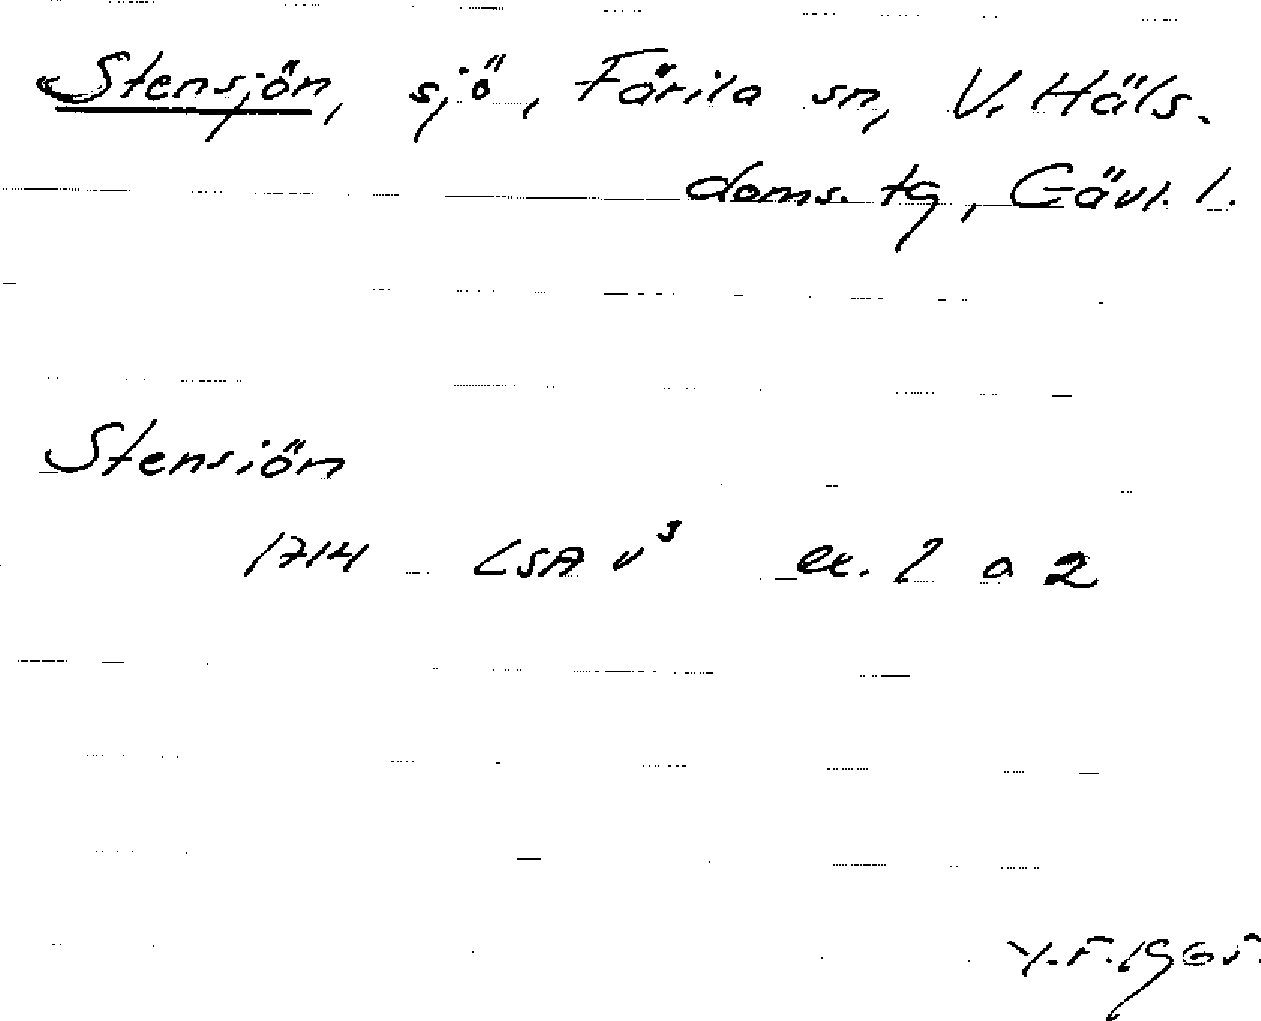 Stensjön, sjö, Färila sn, V. Häls.
doms. tg, Gävl. l.
Stensiön
1714 LSA v³ ex. 1 a 2
Y.F. 1965.